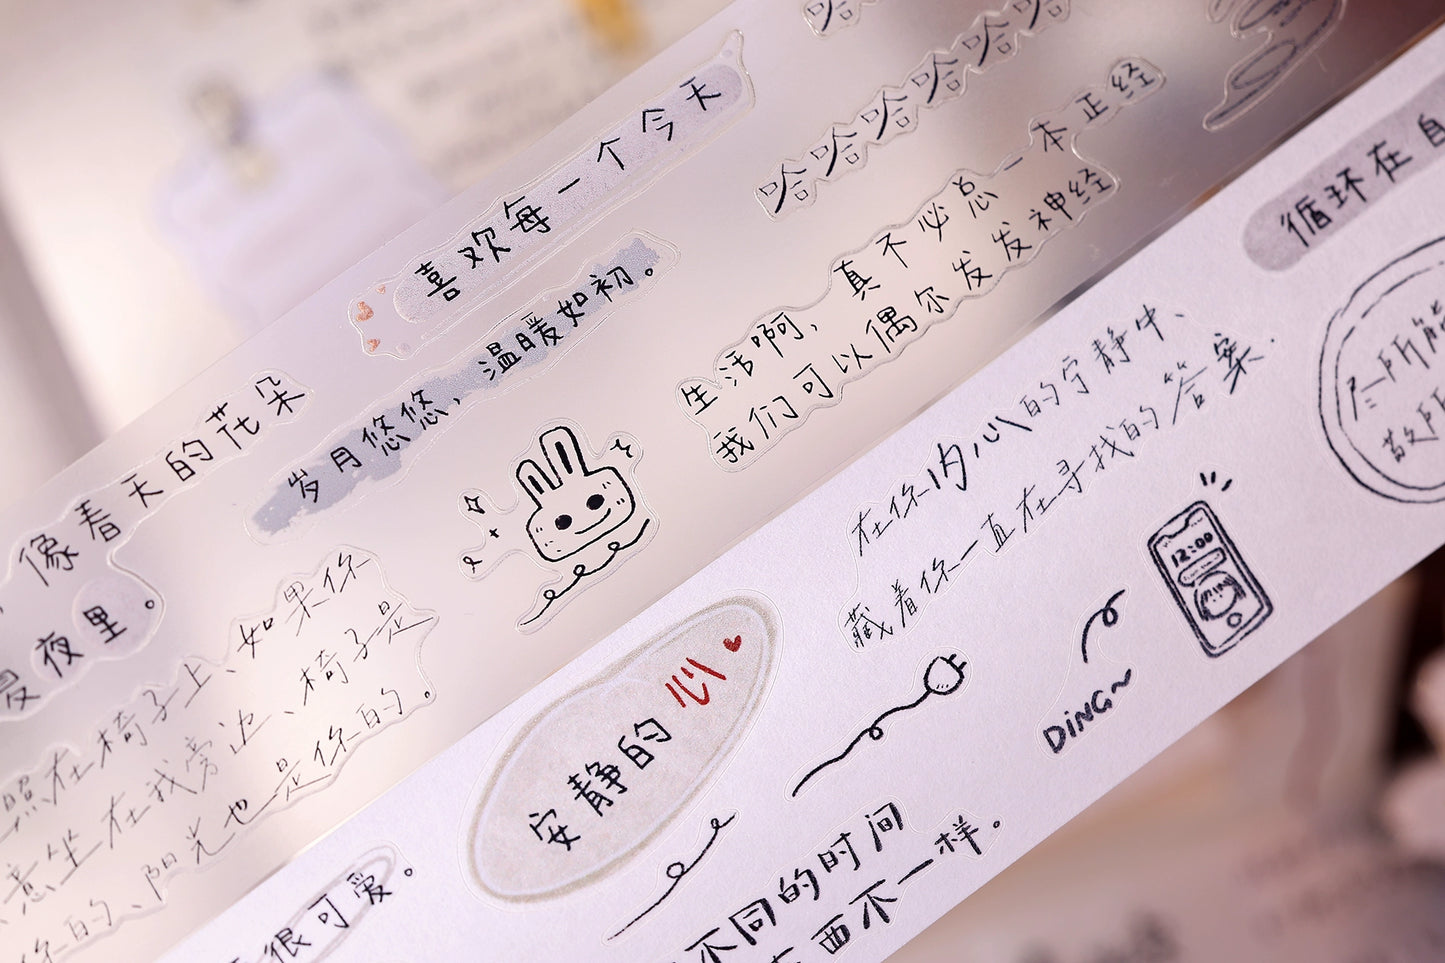 哈
哈哈哈哈哈哈
喜欢每一个今天
岁月悠悠，温暖如初。
生活啊，真不必总一本正经
我们可以偶尔发发神经
像春天的花朵
夜里。
照在椅子上、如果你
意坐在我旁边、椅子是
你的、阳光也是你的.
循环在自
尽所能
敬所
在你内心的宁静中、
藏着你一直在寻找的答案.
12:00
DiNG~
安静的心
很可爱。
不同的时间
西不一样。